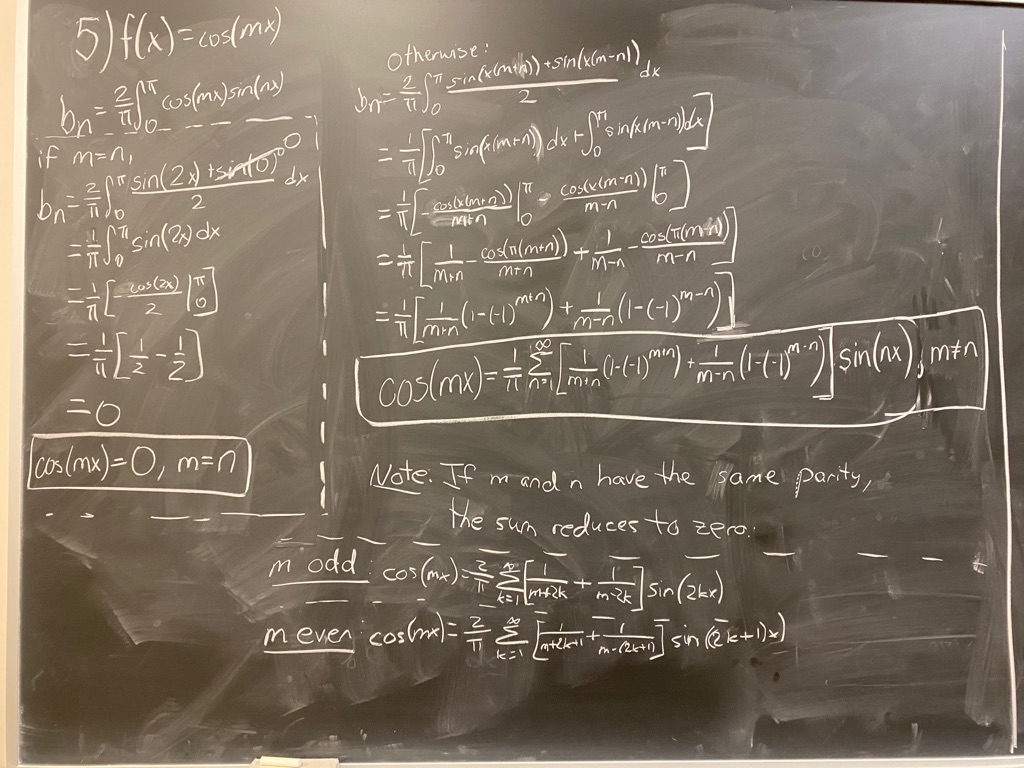 5) f(x) = cos(mx)
bₙ = 2/π ∫₀^π cos(mx) sin(nx)
if m=n,
bₙ = 2/π ∫₀^π (sin(2x) + sin(0))/2 dx
0
= 1/π ∫₀^π sin(2x) dx
= 1/π [-cos(2x)/2 |₀^π]
= 1/π [1/2 - 1/2]
= 0
cos(mx) = 0, m = n
otherwise:
bₙ = 2/π ∫₀^π (sin(x(m+n)) + sin(x(m-n)))/2 dx
= 1/π [∫₀^π sin(x(m+n)) dx + ∫₀^π sin(x(m-n)) dx]
= 1/π [-cos(x(m+n))/(m+n) |₀^π - cos(x(m-n))/(m-n) |₀^π]
= 1/π [1/(m+n) - cos(π(m+n))/(m+n) + 1/(m-n) - cos(π(m-n))/(m-n)]
= 1/π [1/(m+n) (1-(-1)^(m+n)) + 1/(m-n) (1-(-1)^(m-n))]
cos(mx) = 1/π ∑_(n=1)^∞ [1/(m+n) (1-(-1)^(m+n)) + 1/(m-n) (1-(-1)^(m-n))] sin(nx), m≠n
Note. If m and n have the same parity,
the sum reduces to zero.
m odd: cos(mx) = 2/π ∑_(k=1)^∞ [1/(m+2k) + 1/(m-2k)] sin(2kx)
m even: cos(mx) = 2/π ∑_(k=1)^∞ [1/(m+2k+1) + 1/(m-(2k+1))] sin((2k+1)x)